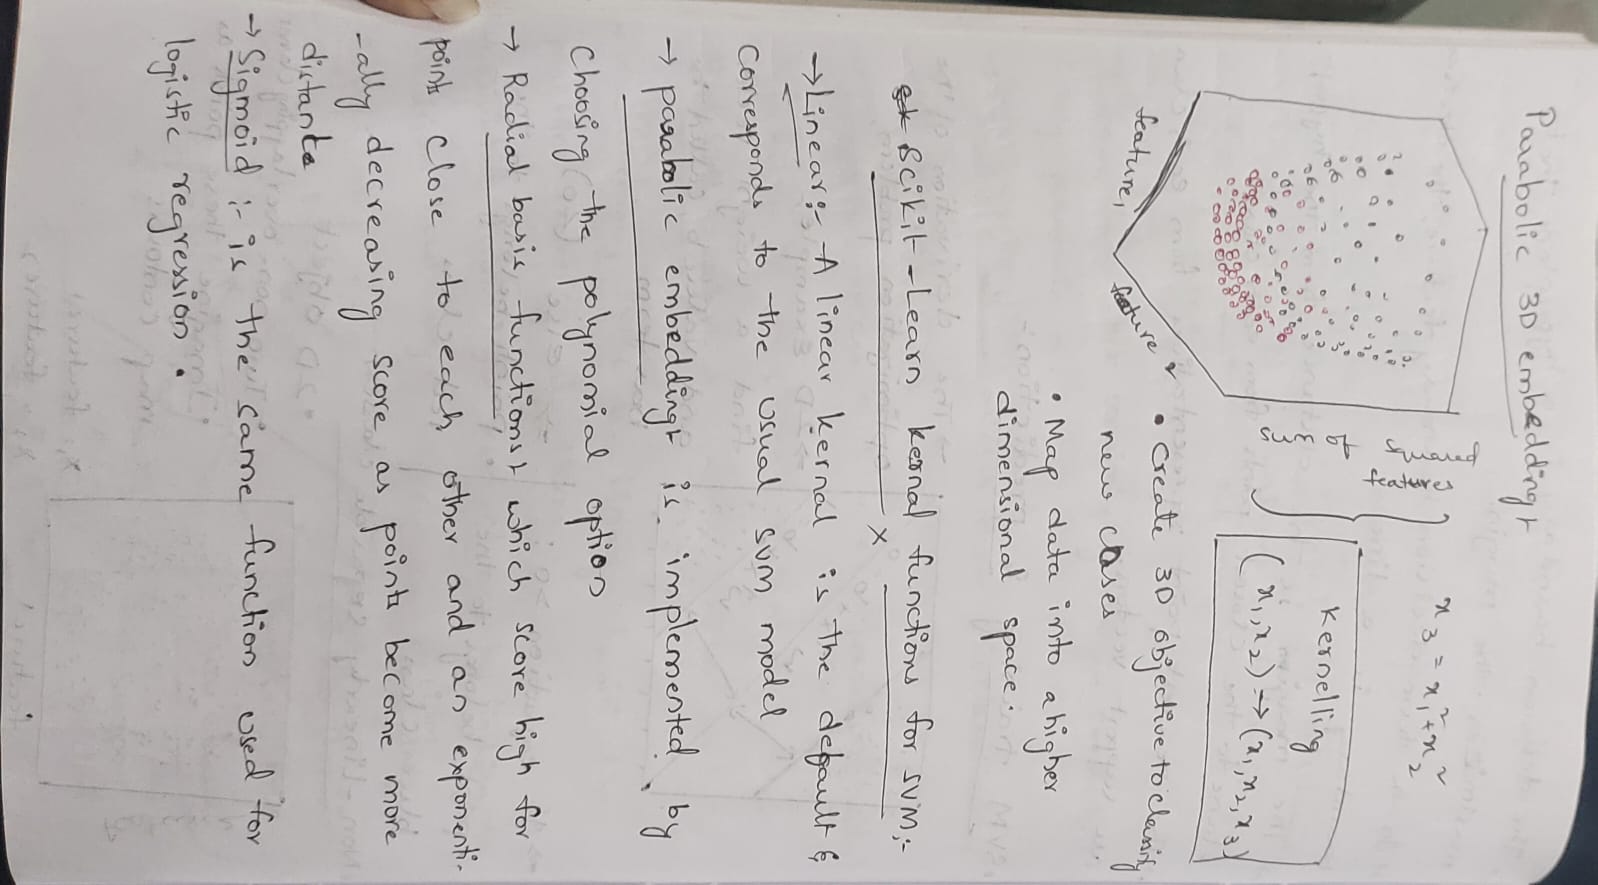 Parabolic 3D embedding
x3 = x1² + x2²
sum of squared
features
feature1
feature 2
Kernelling
(x1, x2) → (x1, x2, x3)
• Create 3D objective to classify
new cases
• Map data into a higher
dimensional space.
Scikit-Learn kernal functions for SVM:-
→ Linear:- A linear kernal is the default &
Corresponds to the usual SVM model
→ parabolic embedding is implemented by
Choosing the polynomial option
→ Radial basis functions which score high for
points close to each other and an exponenti-
-ally decreasing score as points become more
distante
→ Sigmoid :- is the same function used for
logistic regression.